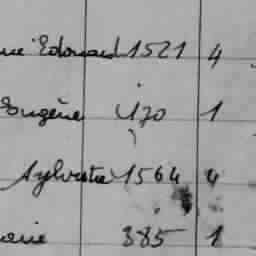 Edouard 1521 4
Eugène 470 1
Sylvestre 1564 4
885 1